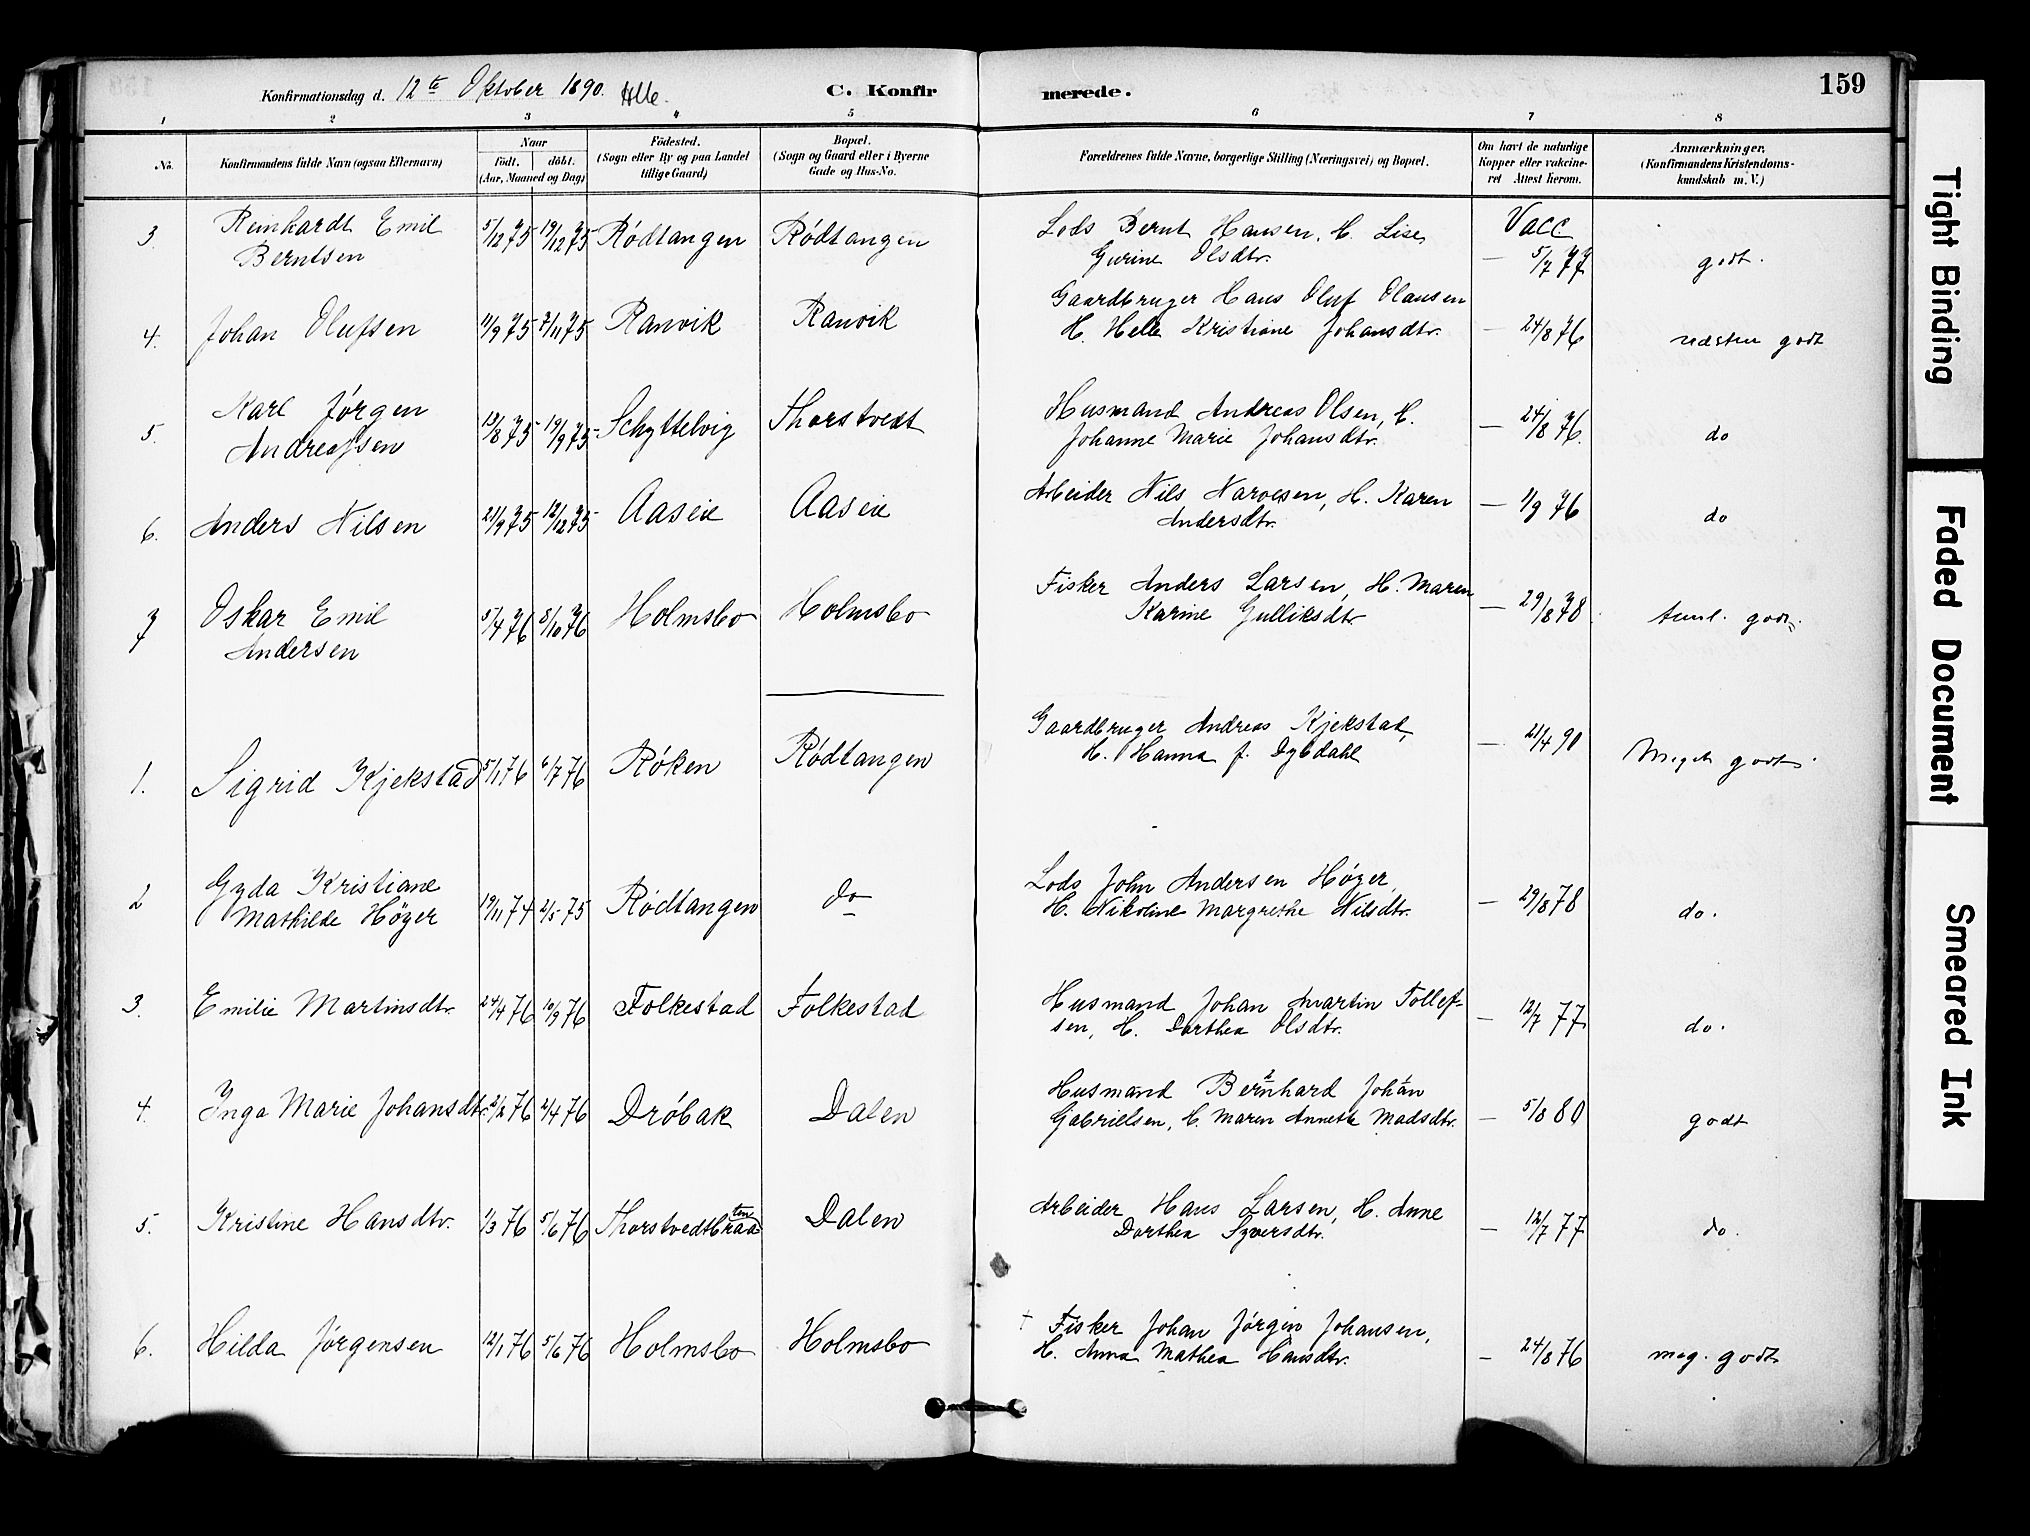 Konfirmationsdag d. 12te Oktober 1890. C. Konfirmerede. 159
1 2 3 4 5 6 7 8
No. Konfirmandens fulde Navn (ogsaa Efternavn) Naar født. døbt. (Aar, Maaned og Dag) Fødested. (Sogn eller By og paa Landet tillige Gaard) Bopæl. (Sogn og Gaard eller i Byerne Gade og Hus-No. Forældrenes fulde Navne, borgerlige Stilling (Næringsvei) og Bopæl. Om havt de naturlige Kopper eller vakcineret Attest herom. Anmærkninger. (Konfirmandens Kristendomskundskab m. V.)
3. Reinhardt Emil Berntsen 5/12 75 19/12 75 Rødtangen Rødtangen Lods Bernt Hansen, H. Lise Gurine Olsdtr. Vacc — 5/7 77 godt.
4. Johan Olufsen 11/9 75 2/11 75 Ranvik Ranvik Gaardbruger Hans Oluf Olausen H. Helle Kristiane Johansdtr. — 24/8 76 næsten godt
5. Karl Jørgen Andreassen 13/8 75 19/9 75 Schyttelvig Thorstvedt Husmand Andreas Olsen, H. Johanne Marie Johansdtr. — 24/8 76. do
6. Anders Nilsen 21/9 75 12/12 75 Aaseie Aaseie Arbeider Nils Narvesen, H. Karen Andersdtr. — 1/9 76 do
7 Oskar Emil Andersen 5/4 76 8/10 76 Holmsbo Holmsbo Fisker Anders Larsen, H. Maren Karine Gulliksdtr — 29/8 78 teml. godt.
1. Sigrid Kjekstad 5/1 76 6/7 76 Røken Rødtangen Gaardbruger Andreas Kjekstad, H. Hanna f. Dybdahl — 21/4 90 Meget godt.
2 Gyda Kristiane Mathilde Höyer 19/11 74 2/5 75 Rødtangen do Lods John Andersen Höyer, H. Nikoline Margrethe Nilsdtr. — 29/8 78 do.
3. Emilie Martinsdtr. 24/4 76 10/9 76 Folkestad Folkestad Husmand Johan Martin Tollefsen, H. Dorthea Olsdtr. — 12/7 77 do.
4. Inga Marie Johansdtr. 2/2 76 2/4 76 Drøbak Dalen Husmand Bernhard Johan Gabrielsen, H. Maren Annette Madsdtr. — 5/8 80 godt
5. Kristine Hansdtr. 1/3 76 5/6 76 Thorstvedtbraaten Dalen Arbeider Hans Larsen, H. Anne Dorthea Syversdtr. — 12/7 77 do.
6. Hilda Jørgensen 12/1 76 5/6 76 Holmsbo Holmsbo † Fisker Johan Jørgen Johansen, H. Anna Mathea Hansdtr. — 24/8 76 meg. godt
Tight Binding
Faded Document
Smeared Ink